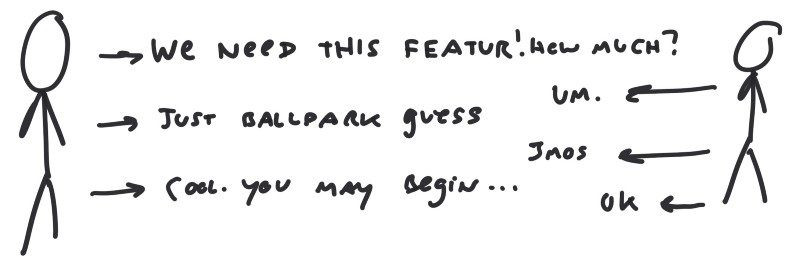 WE NEED THIS FEATUR! HOW MUCH?
UM.
JUST BALLPARK GUESS
JMOS
COOL. YOU MAY BEGIN...
OK